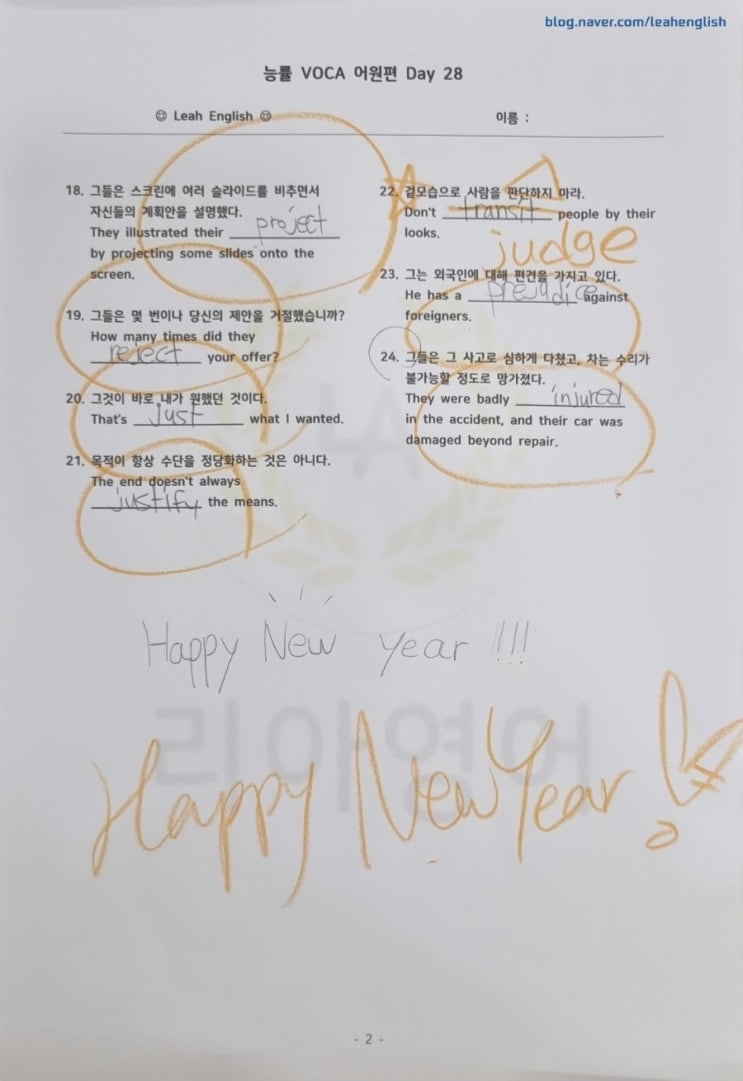 blog.naver.com/leahenglish
능률 VOCA 어원편 Day 28
☺ Leah English ☺
이름 :
18. 그들은 스크린에 여러 슬라이드를 비추면서
자신들의 계획안을 설명했다.
They illustrated their project
by projecting some slides onto the
screen.
19. 그들은 몇 번이나 당신의 제안을 거절했습니까?
How many times did they
reject your offer?
20. 그것이 바로 내가 원했던 것이다.
That's just what I wanted.
21. 목적이 항상 수단을 정당화하는 것은 아니다.
The end doesn't always
justify the means.
22. 겉모습으로 사람을 판단하지 마라.
Don't transit people by their
looks.
judge
23. 그는 외국인에 대해 편견을 가지고 있다.
He has a prejudice against
foreigners.
24. 그들은 그 사고로 심하게 다쳤고, 차는 수리가
불가능할 정도로 망가졌다.
They were badly injured
in the accident, and their car was
damaged beyond repair.
Happy New year !!!
Happy New Year !
리아영어
- 2 -